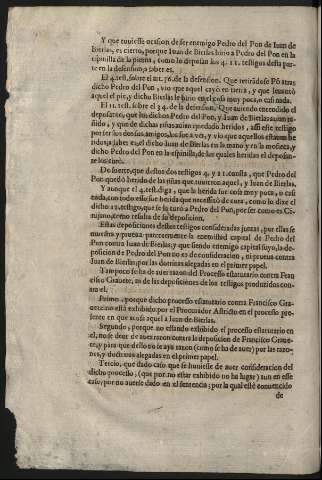 Y que tuuiesse ocasion de ser enemigo Pedro del Pon de Iuan de
Bierlas, es cierto, porque Iuan de Bierlas hirio a Pedro del Pon en la
espinilla de la pierna, como lo deposan los 4. 11. testigos desta par-
te en la defension,a saber es.
El 4.test.sobre el art.36.de la defension. Que retirádose Pō atras
dicho Pedro del Pon, vio que aquel cayò en tierra, y que leuantò
aquel el pie,y dicho Bierlas le hirio en el cosa muy poca,o casi nada.
El 11. test.sobre el 34. de la defension. Que auiendo entendido el
deposante, que los dichos Pedro del Pon, y Iuan de Bierlas auian re-
ñido, y que de dichas riñas auian quedado heridos, assi este testigo
por ser los dos sus amigos,los fue a ver, y vio que aquellos estauan he-
ridos,a saber es,el dicho Iuan de Bierlas en la mano y en la moñeca,y
dicho Pedro del Pon en la espinilla,de las quales heridas el deposan-
te los curò.
De suerte,que destos dos testigos 4. y 11.consta, que Pedro del
Pon quedò herido de las riñas que tuuieron aquel, y Iuan de Bierlas.
Y aunque el 4.test.diga, que la herida fue cosa muy poca, o casi
nada,con todo esso fue herida que necessitò de cura, como lo dize el
dicho 11.testigo,que fue el q̃ curò a Pedro del Pon,por ser como es Ci-
rujano,como resulta de su deposicion.
Estas deposiciones destos testigos consideradas juntas, por ellas se
muestra,y prueua patentemente la enemistad capital de Pedro del
Pon contra Iuan de Bierlas;y que siendo enemigo capital suyo,la de-
posicion de Pedro del Pon no es de consideracion, ni prueua contra
Iuan de Bierlas,por las dotrinas alegadas en el primer papel.
Tampoco se ha de auer razon del Processo estatutario contra Fran
cisco Grauete, ni de las deposiciones de los testigos produzidos con-
tra el.
Primo, porque dicho processo estatutario contra Francisco Gra-
uete,no està exhibido por el Procurador Astricto en el processo pre-
sente en que acusa aquel a Iuan de Bierlas.
Segundo, porque no estando exhibido el processo estatutario en
el,no se deue de auer razon contra la deposicion de Francisco Graue-
te,y para que dello no se aya razon (como se ha de auer) por las razo-
nes,y doctrinas alegadas en el primer papel.
Tercio, que dado caso que se huuiesse de auer consideracion del
dicho processo, (que por no estar exhibido no ha lugar) aun en esse
caso,por no auerse dado en el sentencia; por la qual esté conuencido
de